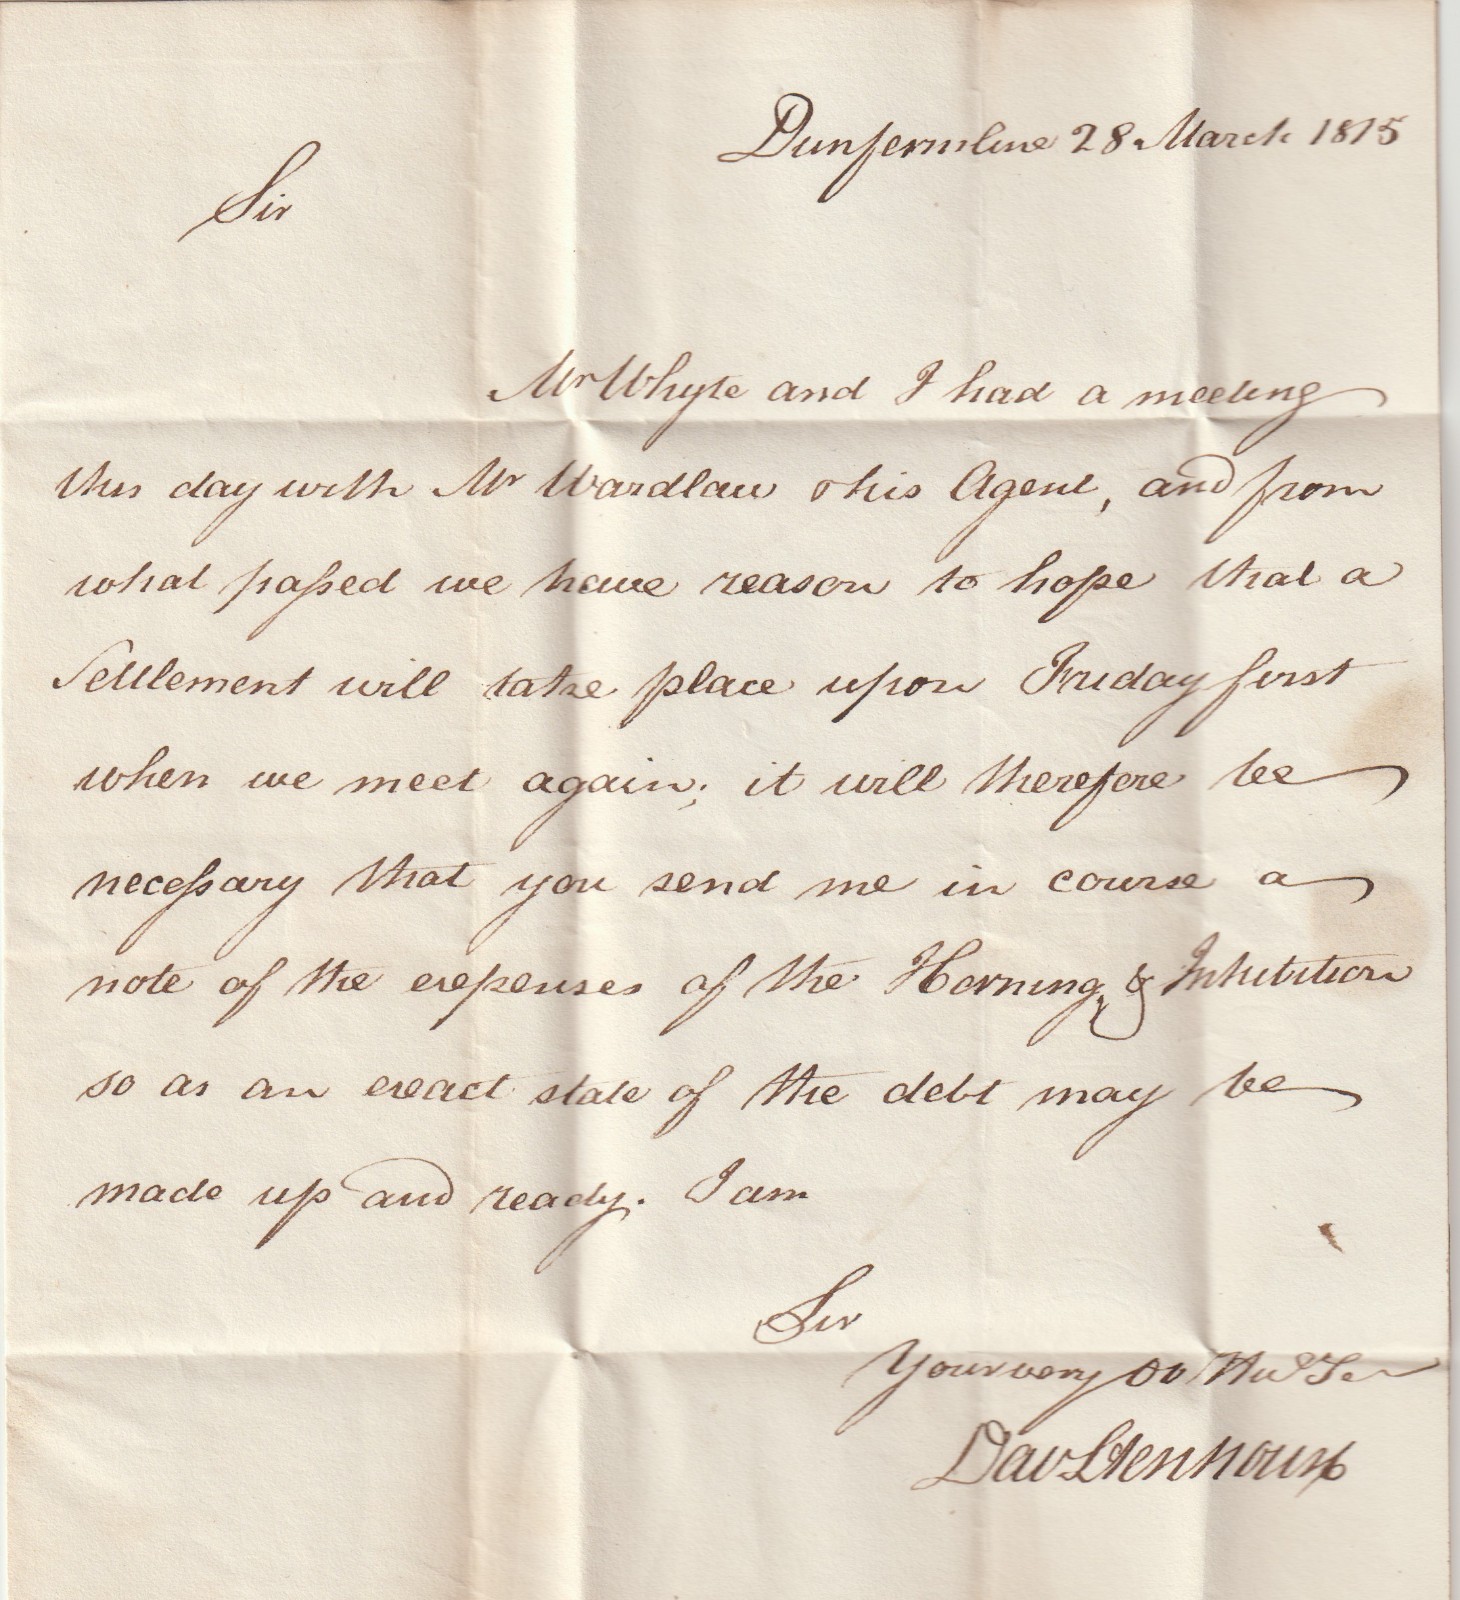 Dunfermline 28 March 1815
Sir
Mr Whyte and I had a meeting
this day with Mr Wardlaw & his Agent, and from
what paſsed we have reason to hope that a
Settlement will take place upon Friday first
when we meet again; it will therefore be
neceſsary that you send me in course a
note of the expenses of the Horning & Inhibition
so as an exact state of the debt may be
made up and ready. I am
Sir
Your very Ob Hu Se
Dav Stenhouse